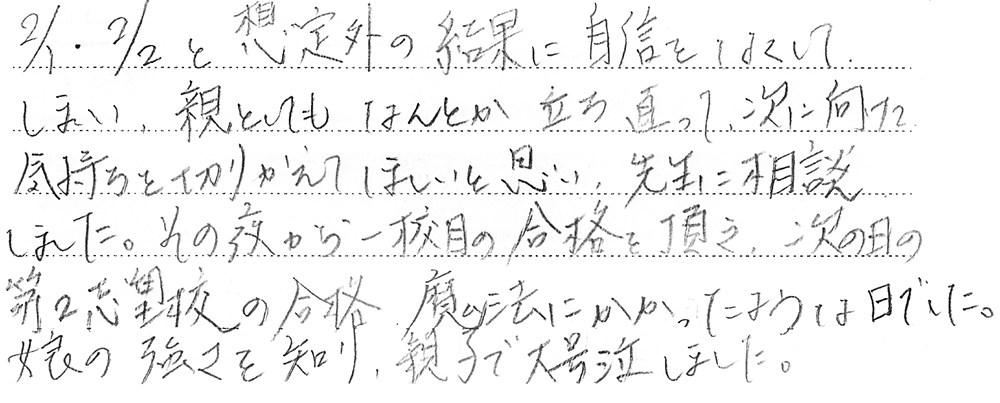 2/1・2/2と想定外の結果に自信をなくして
しまい、親としてもなんとか立ち直って、次に向けた
気持ちを切りかえてほしいと思い、先生に相談
しました。その夜から一校目の合格を頂き、次の日の
第2志望校の合格 魔法にかかったような日でした。
娘の強さを知り、親子で大号泣しました。